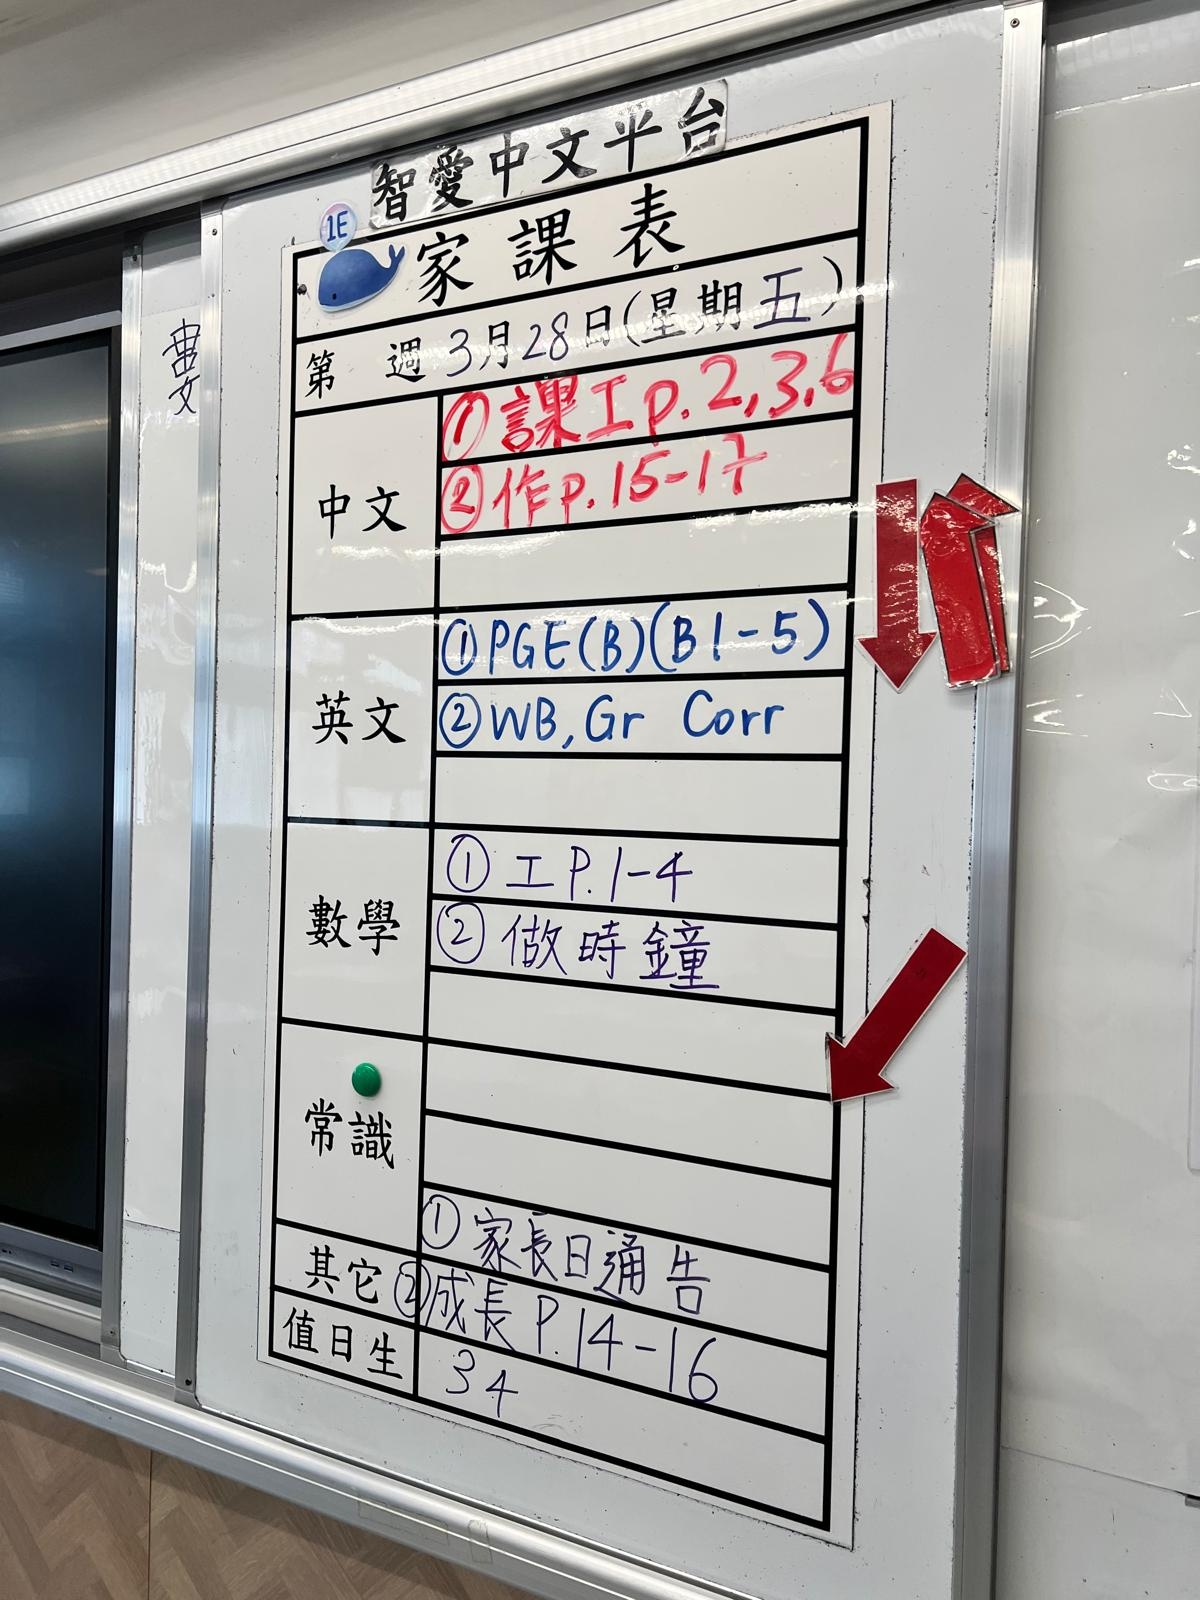 智愛中文平台
1E
家課表
第 週 3月28日(星期五)
中文
① 課工p.2,3,6
② 作p.15-17
英文
① PGE(B)(B1-5)
② WB,Gr Corr
數學
① 工P.1-4
② 做時鐘
常識
其它
① 家長日通告
② 成長P.14-16
值日生
34